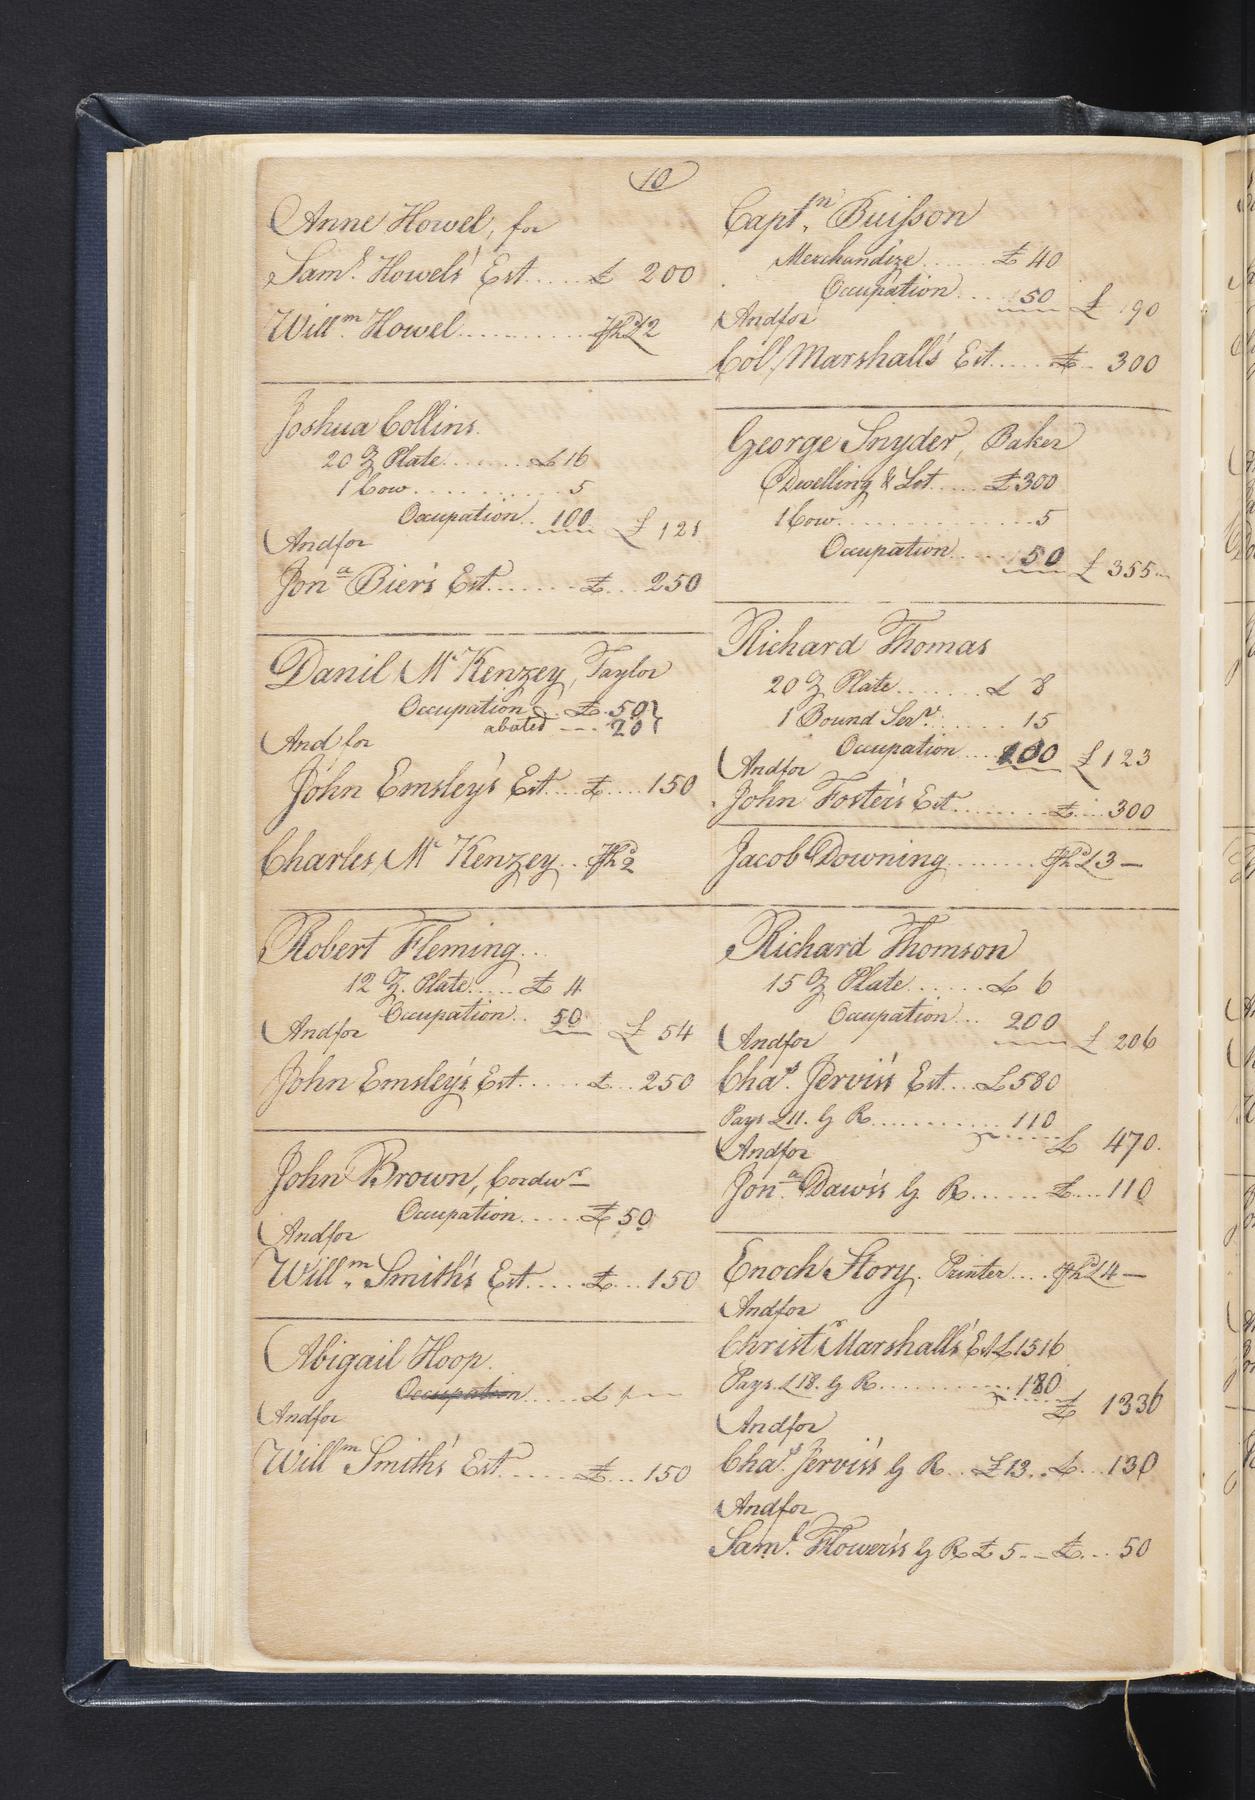 10
Anne Howel, for
Sam.l Howels' Est..... £ 200
Will.m Howel............. Ph.d £2
Joshua Collins.
20 ℥ Plate....... £ 16
1 Cow............ 5
Occupation.. 100 £ 121
And for
Jon.a Bier's Est....... £... 250
Danil Mc Kenzey, Taylor
Occupation.. £. 50
abated --- 20
And for
John Emsley's Est... £.... 150
Charles Mc Kenzey.. Ph.d 2
Robert Fleming...
12 ℥. Plate..... £ 4
Occupation.. 50 £ 54
And for
John Emsley's Est..... £... 250
John Brown, Cordwr
Occupation.... £ 50
And for
Will.m Smith's Est.... £... 150
Abigail Hoop.
Occupation..... £
And for
Will.m Smith's Est..... £... 150
Capt.n Buisson
Merchandize..... £ 40
Occupation... 50 £ 90
And for
Coll. Marshall's Est..... £.. 300
George Snyder, Baker
Dwelling & Lot.... £ 300
1 Cow................ 5
Occupation.... 50 £ 355
Richard Thomas
20 ℥ Plate....... £ 8
1 Bound Serv.t...... 15
Occupation... 100 £ 123
And for
John Foster's Est........ £... 300
Jacob Downing........ Ph.d £3 —
Richard Thomson
15 ℥ Plate...... £ 6
Occupation... 200 £ 206
And for
Cha.s Jervis's Est... £ 580
Pays £11. G R........... 110
£ 470.
And for
Jon.a Daws's G R...... £... 110
Enoch Story. Printer.... Ph.d £4 —
And for
Christ.r Marshall's Est £ 1516
Pays. £18. G R........... 180
£ 1336
And for
Cha.s Jervis's G R.. £ 13.. £... 130
And for
Sam.l Flower's G R £ 5.. £... 50